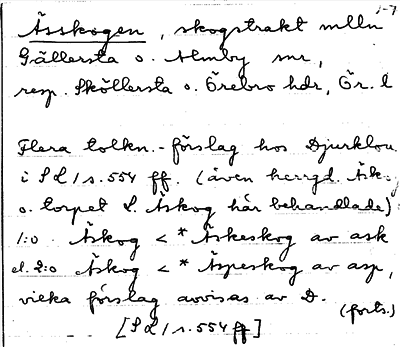 1-7
Ässkogen, skogstrakt mlln
Gällersta o. Almby snr,
resp. Sköllersta o. Örebro hdr, Ör. l
Flera tolkn.-förslag hos Djurklou
i SL 1 s. 554 ff. (även herrgd. Äsk.
o. torpet L. Äskog här behandlade)
1:o Äskog < * Äskeskog av ask
el. 2:o Äskog < * Äspeskog av asp,
vilka förslag avvisas av D.
(forts.)
[SL 1 s. 554 ff]